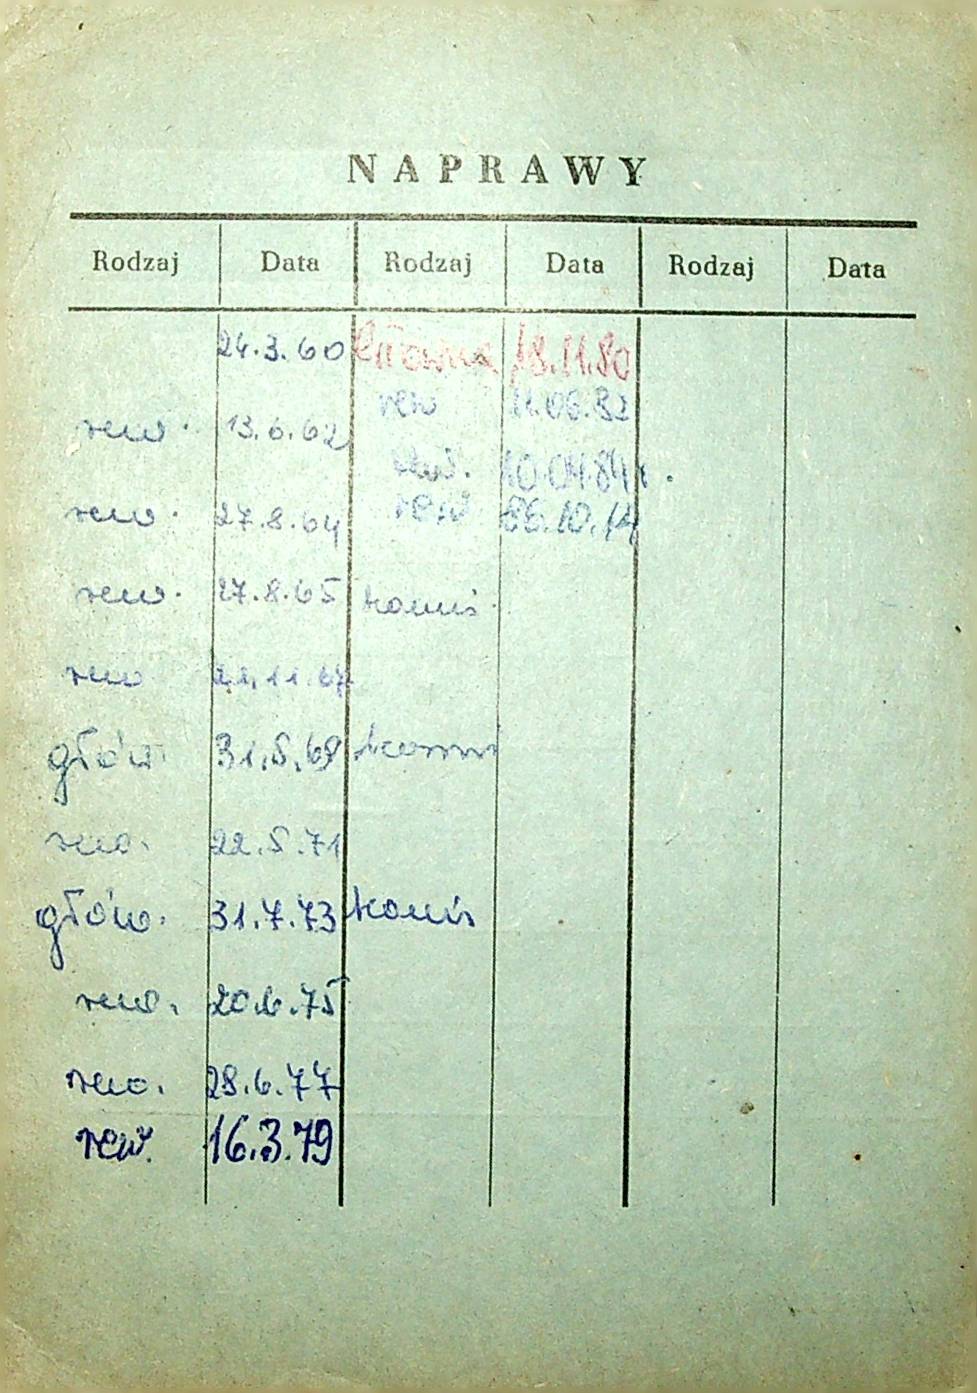 NAPRAWY
Rodzaj Data Rodzaj Data Rodzaj Data
24.3.60 18.11.80
rew 11.06.82
rew. 13.6.62
10.04.84r.
rew. 27.8.64 rew 86.10.14
rew. 27.8.65 komis.
rew 22.11.67
głów. 31.5.69
rew. 22.5.71
głów. 31.7.73 komis
rew. 20.6.75
rew. 28.6.77
rew. 16.3.79